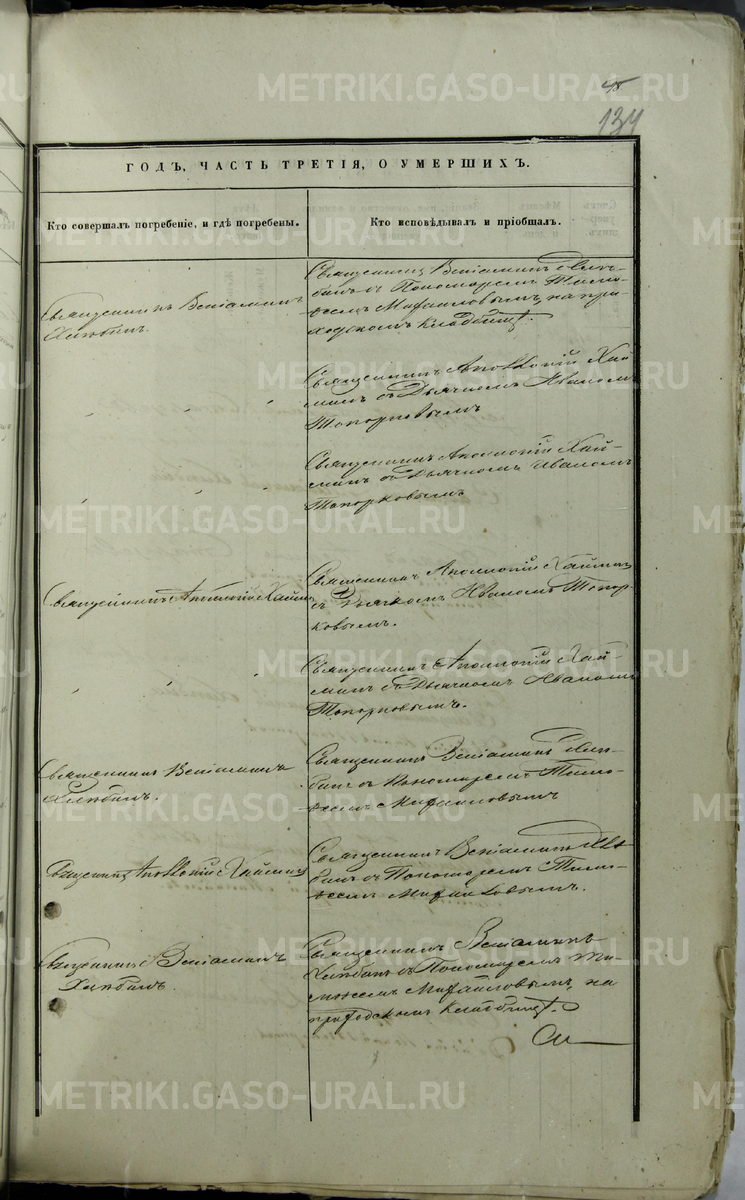 134
ГОДЪ, ЧАСТЬ ТРЕТІЯ, О УМЕРШИХЪ.
Кто совершалъ погребеніе, и гдѣ погребены.
Кто исповѣдывалъ и пріобщалъ.
Священникъ Веніаминъ
Хлѣбинъ.
Священникъ Веніаминъ Хлѣ-
бинъ съ Пономаремъ Тимо-
ѳеемъ Михайловымъ, на при-
ходскомъ кладбищѣ.
Священникъ Аполлоній Хай-
минъ съ Дьячкомъ Иваномъ
Топорковымъ
Священникъ Аполлоній Хай-
минъ съ Дьячкомъ Иваномъ
Топорковымъ
Священникъ Аполлоній Хайминъ
Священникъ Аполлоній Хайминъ
съ Дьячкомъ Иваномъ Топор-
ковымъ.
Священникъ Аполлоній Хай-
минъ съ Дьячкомъ Иваномъ
Топорковымъ.
Священникъ Веніаминъ
Хлѣбинъ.
Священникъ Веніаминъ Хлѣ-
бинъ съ Пономаремъ Тимо-
ѳеемъ Михайловымъ
Священникъ Аполлоній Хайминъ
Священникъ Веніаминъ Хлѣ-
бинъ съ Пономаремъ Тимо-
ѳеемъ Михайловымъ.
Священникъ Веніаминъ
Хлѣбинъ.
Священникъ Веніаминъ
Хлѣбинъ съ Пономаремъ Ти-
моѳеемъ Михайловымъ, на
приходскомъ кладбищѣ.
METRIKI.GASO-URAL.RU
METRIKI.GASO-URAL.RU
METRIKI.GASO-URAL.RU
METRIKI.GASO-URAL.RU
METRIKI.GASO-URAL.RU
METRIKI.GASO-URAL.RU
METRIKI.GASO-URAL.RU
METRIKI.GASO-URAL.RU